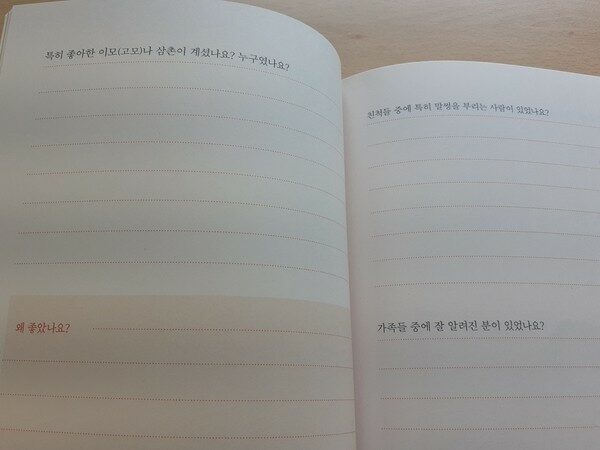 특히 좋아한 이모(고모)나 삼촌이 계셨나요? 누구였나요?
왜 좋았나요?
친척들 중에 특히 말썽을 부리는 사람이 있었나요?
가족들 중에 잘 알려진 분이 있었나요?